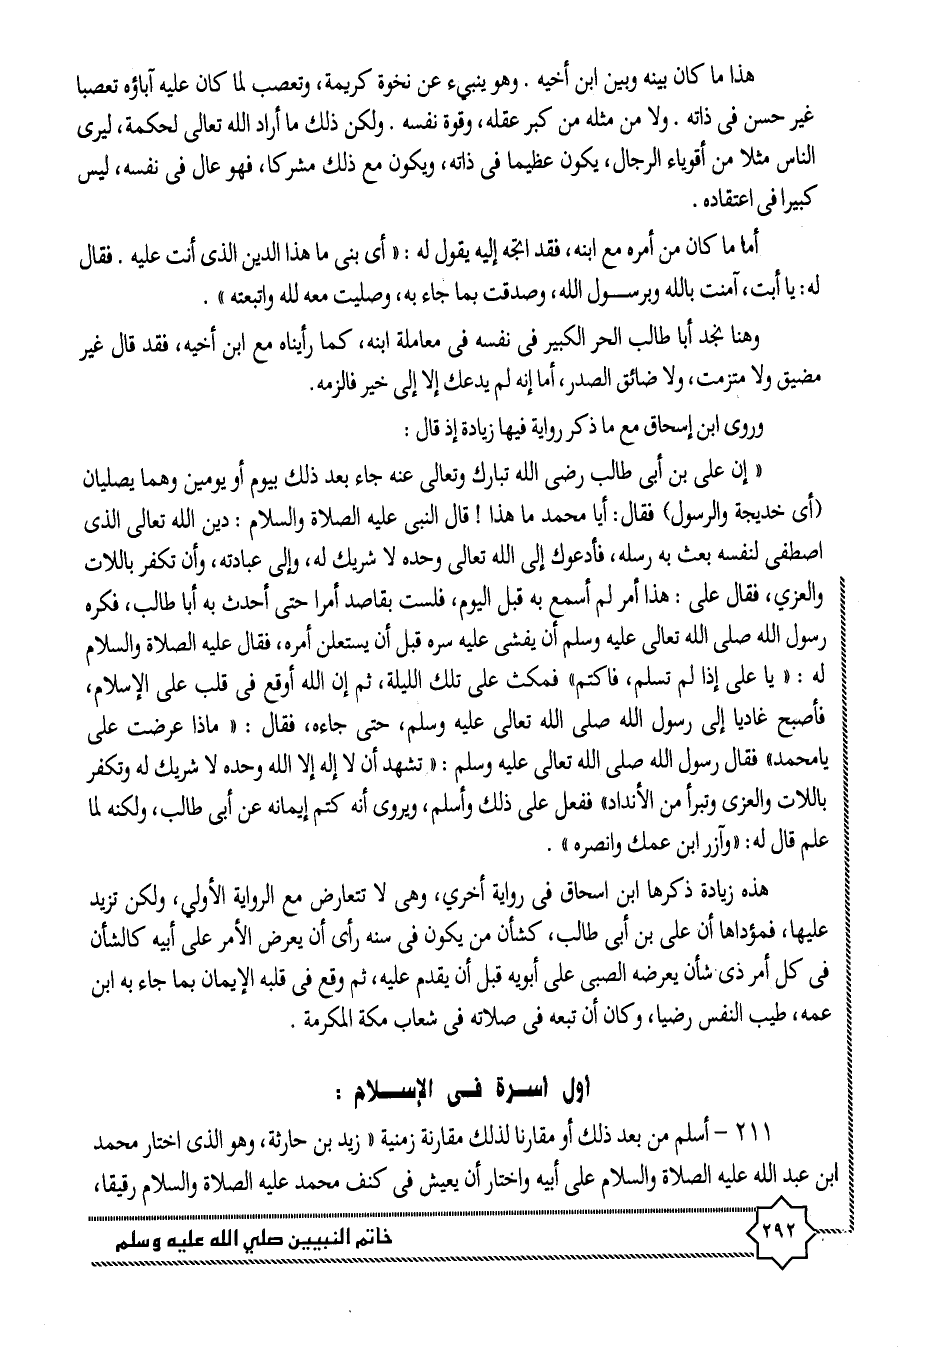 هذا ما كان بينه وبين ابن أخيه . وهو ينبيء عن نخوة كريمة، وتعصب لما كان عليه آباؤه تعصبا
غير حسن فى ذاته . ولا من مثله من كبر عقله، وقوة نفسه . ولكن ذلك ما أراد الله تعالى لحكمة، ليرى
الناس مثلا من أقوياء الرجال، يكون عظيما فى ذاته، ويكون مع ذلك مشركا، فهو عال فى نفسه، ليس
كبيرا فى اعتقاده .
أما ما كان من أمره مع ابنه، فقد اتجه إليه يقول له : « أى بنى ما هذا الدين الذى أنت عليه . فقال
له: يا أبت، آمنت بالله وبرسول الله، وصدقت بما جاء به، وصليت معه لله واتبعته » .
وهنا نجد أبا طالب الحر الكبير فى نفسه فى معاملة ابنه، كما رأيناه مع ابن أخيه، فقد قال غير
مضيق ولا متزمت، ولا ضائق الصدر، أما إنه لم يدعك إلا إلى خير فالزمه.
وروى ابن إسحاق مع ما ذكر رواية فيها زيادة إذ قال :
« إن على بن أبى طالب رضى الله تبارك وتعالى عنه جاء بعد ذلك بيوم أو يومين وهما يصليان
(أى خديجة والرسول) فقال: أيا محمد ما هذا ! قال النبى عليه الصلاة والسلام : دين الله تعالى الذى
اصطفى لنفسه بعث به رسله، فأدعوك إلى الله تعالى وحده لا شريك له، وإلى عبادته، وأن تكفر باللات
والعزي، فقال على : هذا أمر لم أسمع به قبل اليوم، فلست بقاصد أمرا حتى أحدث به أبا طالب، فكره
رسول الله صلى الله تعالى عليه وسلم أن يفشى عليه سره قبل أن يستعلن أمره، فقال عليه الصلاة والسلام
له : « يا على إذا لم تسلم، فاكتم» فمكث على تلك الليلة، ثم إن الله أوقع فى قلب على الإسلام،
فأصبح غاديا إلى رسول الله صلى الله تعالى عليه وسلم، حتى جاءه، فقال : « ماذا عرضت على
يامحمد» فقال رسول الله صلى الله تعالى عليه وسلم : « تشهد أن لا إله إلا الله وحده لا شريك له وتكفر
باللات والعزى وتبرأ من الأنداد» ففعل على ذلك وأسلم، ويروى أنه كتم إيمانه عن أبى طالب، ولكنه لما
علم قال له: «وآزر ابن عمك وانصره » .
هذه زيادة ذكرها ابن اسحاق فى رواية أخري، وهى لا تتعارض مع الرواية الأولي، ولكن تزيد
عليها، فمؤداها أن على بن أبى طالب، كشأن من يكون فى سنه رأى أن يعرض الأمر على أبيه كالشأن
فى كل أمر ذى شأن يعرضه الصبى على أبويه قبل أن يقدم عليه، ثم وقع فى قلبه الإيمان بما جاء به ابن
عمه، طيب النفس رضيا، وكان أن تبعه فى صلاته فى شعاب مكة المكرمة .
اول اسرة فى الإسلام :
٢١١ – أسلم من بعد ذلك أو مقارنا لذلك مقارنة زمنية « زيد بن حارثة، وهو الذى اختار محمد
ابن عبد الله عليه الصلاة والسلام على أبيه واختار أن يعيش فى كنف محمد عليه الصلاة والسلام رقيقا،
٢٩٢
خاتم النبيين صلي الله عليه وسلم